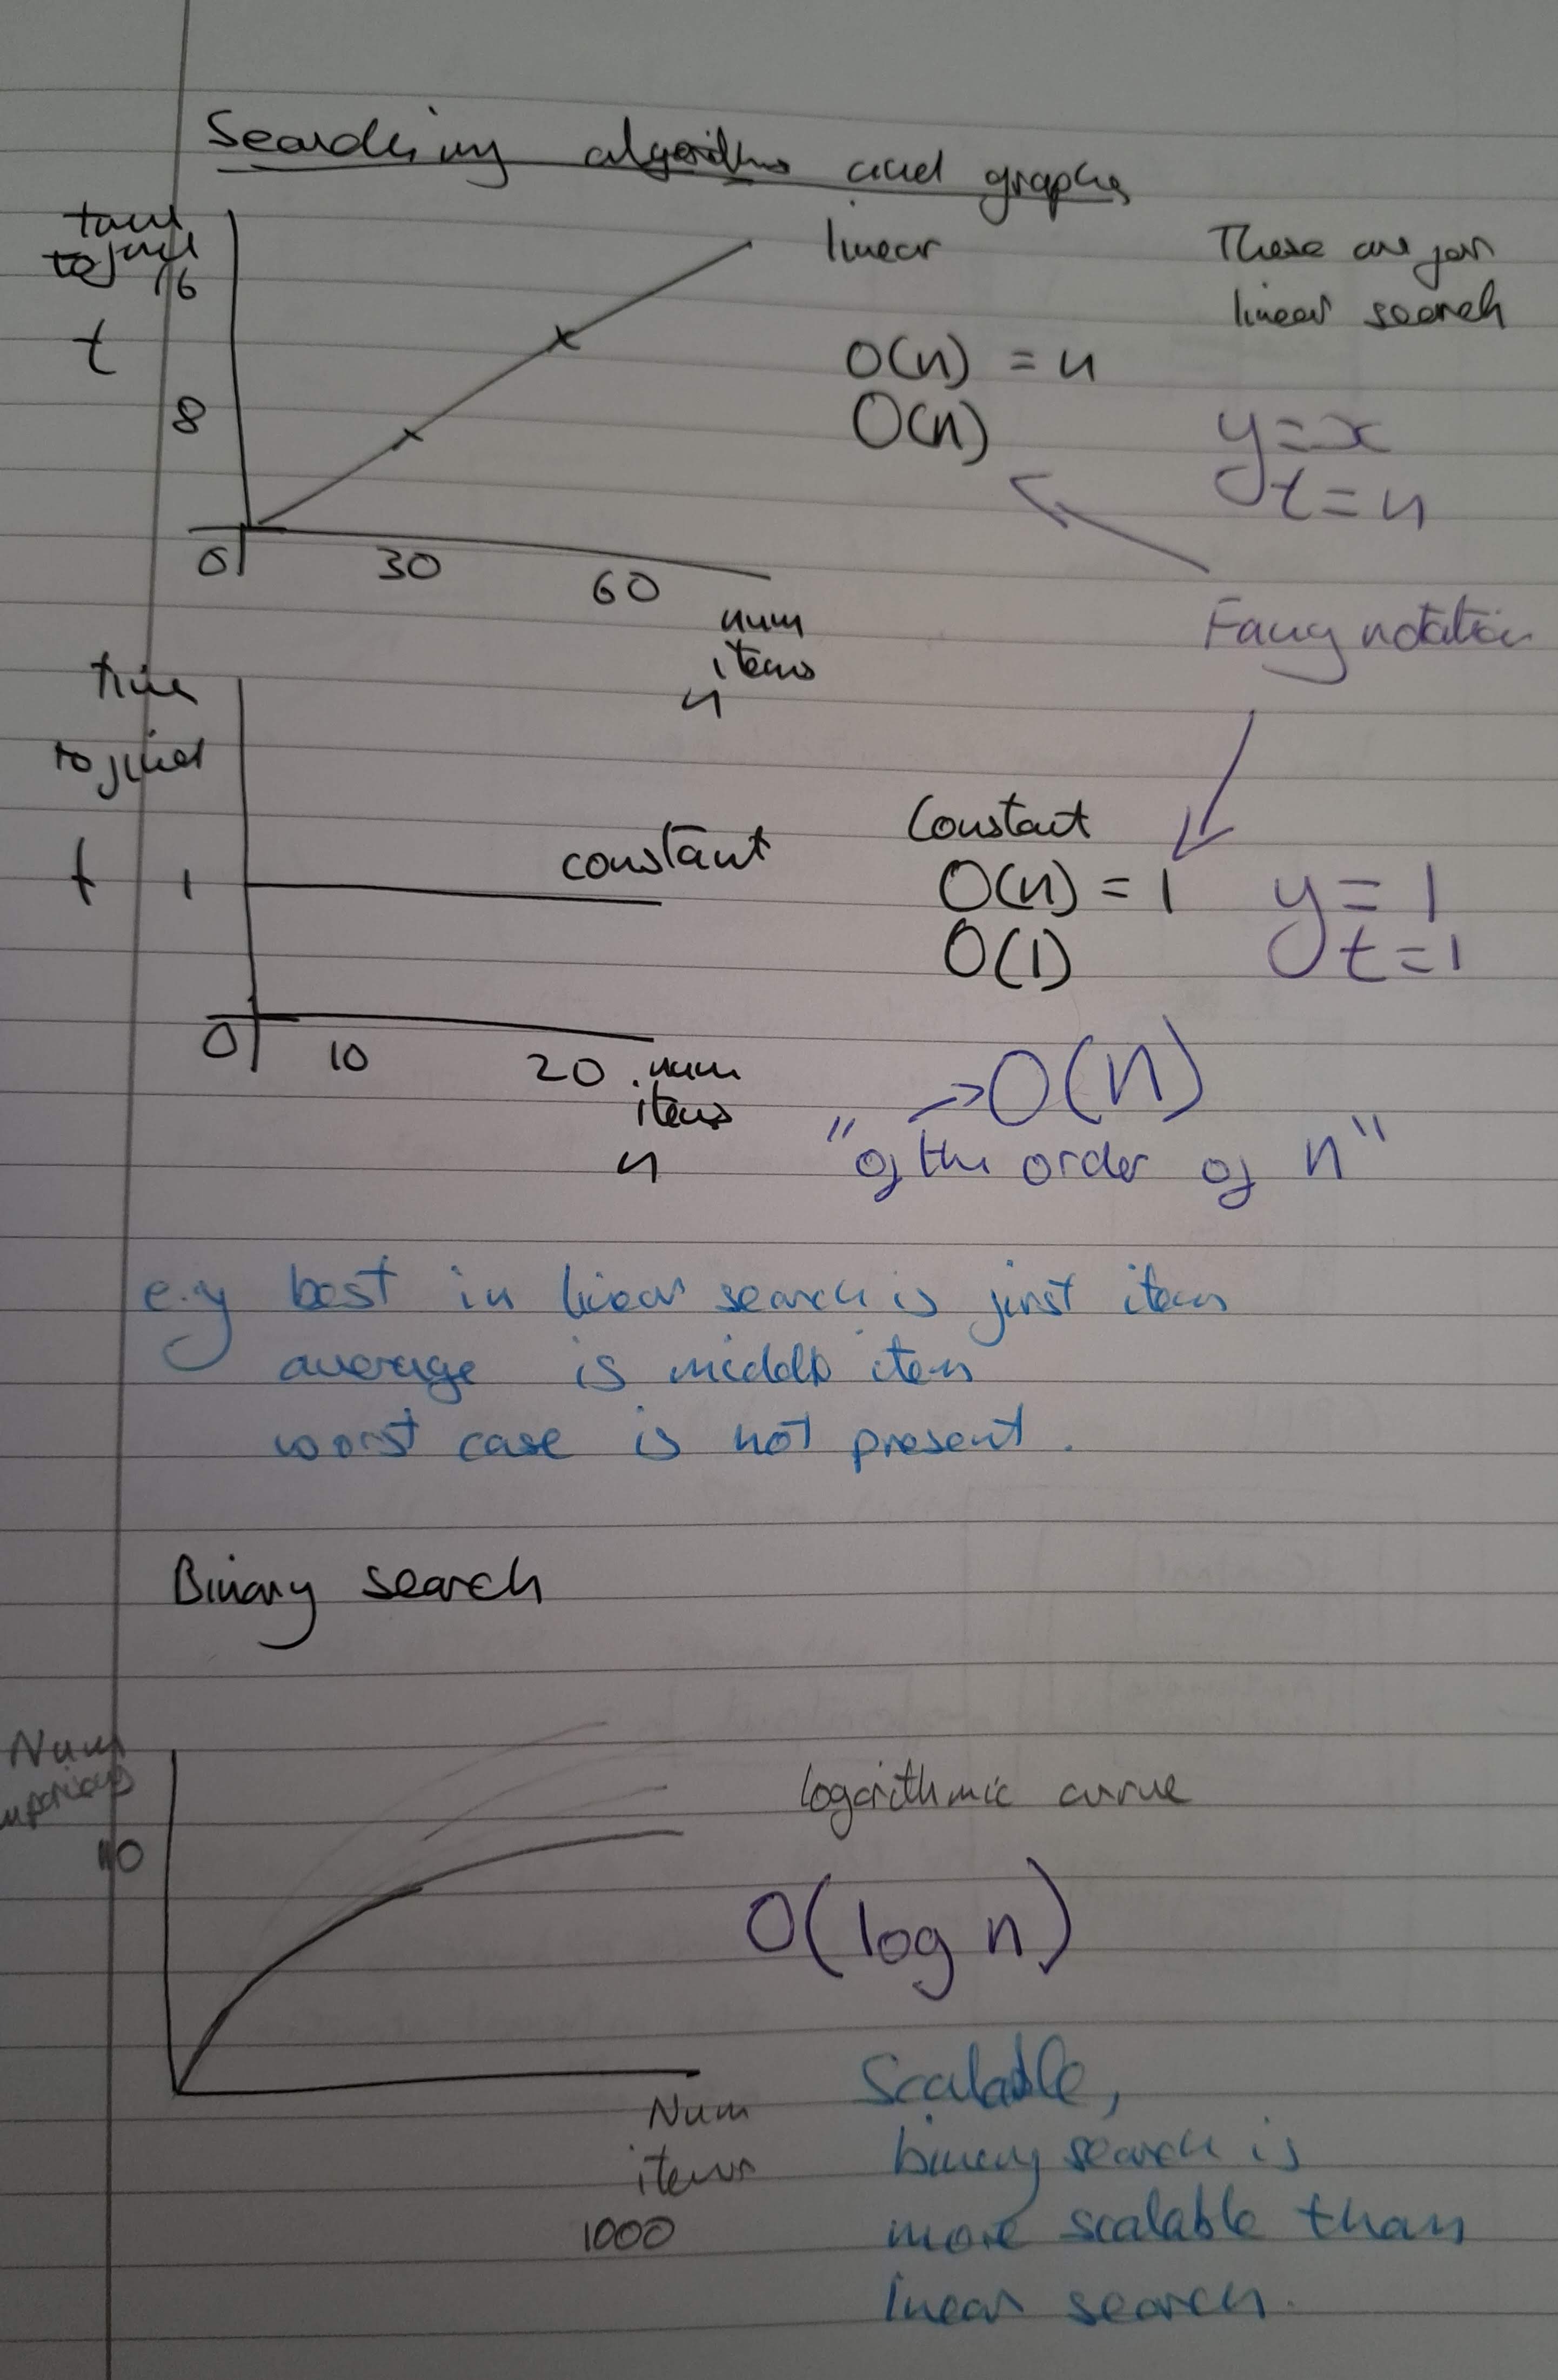 Searching algorithms and graphs
time
to find
16
t
8
0
30
60
num
items
n
linear
O(n) = n
O(n)
These are for
linear search
y=x
t=n
Fancy notation
time
to find
t
1
constant
0
10
20
num
items
n
Constant
O(n) = 1
O(1)
y = 1
t=1
→O(n)
"of the order of n"
e.g best in linear search is first item
average is middle item
worst case is not present.
Binary search
Num
10
Num
items
1000
logarithmic curve
O(log n)
Scalable,
binary search is
more scalable than
linear search.